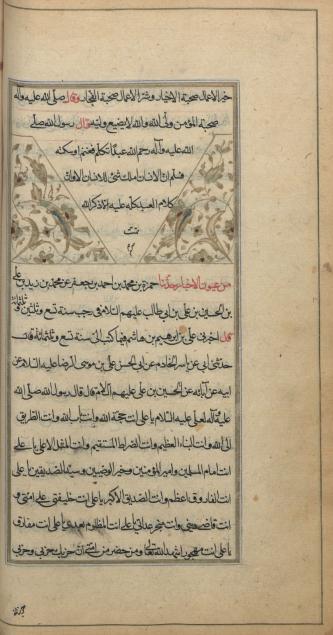 خير الاعمال صحبة الاخيار وشر الاعمال صحبة الفجار وقال صلى الله عليه وآله
صحبة المؤمن ولى الله والله لا يضيع وليه قال رسول الله صلى
الله عليه وآله رحم الله عبدا تكلم فغنم او سكت
فسلم ان الانسان املك شئ للانسان الا وان
كلام العبد كله عليه الا ذكر الله
تمت
من عيون الاخبار حدثنا حمزة بن محمد بن احمد بن جعفر بن محمد بن زيد بن على
بن الحسين بن على بن ابي طالب عليهم السلام فى رجب سنة تسع وثلثين وثلثمائة
قال اخبرنى على بن ابرهيم بن هاشم فيما كتب الى سنة تسع وثلثمائة قال
حدثنى ابى عن ياسر الخادم عن ابى الحسن على بن موسى الرضا عليه السلام عن
ابيه عن آبائه عن الحسين بن على عليهم السلام قال قال رسول الله صلى الله
عليه وآله لعلى عليه السلام يا على انت حجة الله وانت باب الله وانت الطريق
الى الله وانت النباء العظيم وانت الصراط المستقيم وانت المثل الاعلى يا على
انت امام المسلمين وامير المؤمنين وخير الوصيين وسيد الصديقين يا على
انت الفاروق الاعظم وانت الصديق الاكبر يا على انت خليفتى على امتى و
انت قاضى دينى وانت منجز عداتى يا على انت المظلوم بعدى يا على انت مفارق
يا على انت محجوب اشهد الله تعالى ومن حضر من امتى ان حزبك حزبى وحزبى